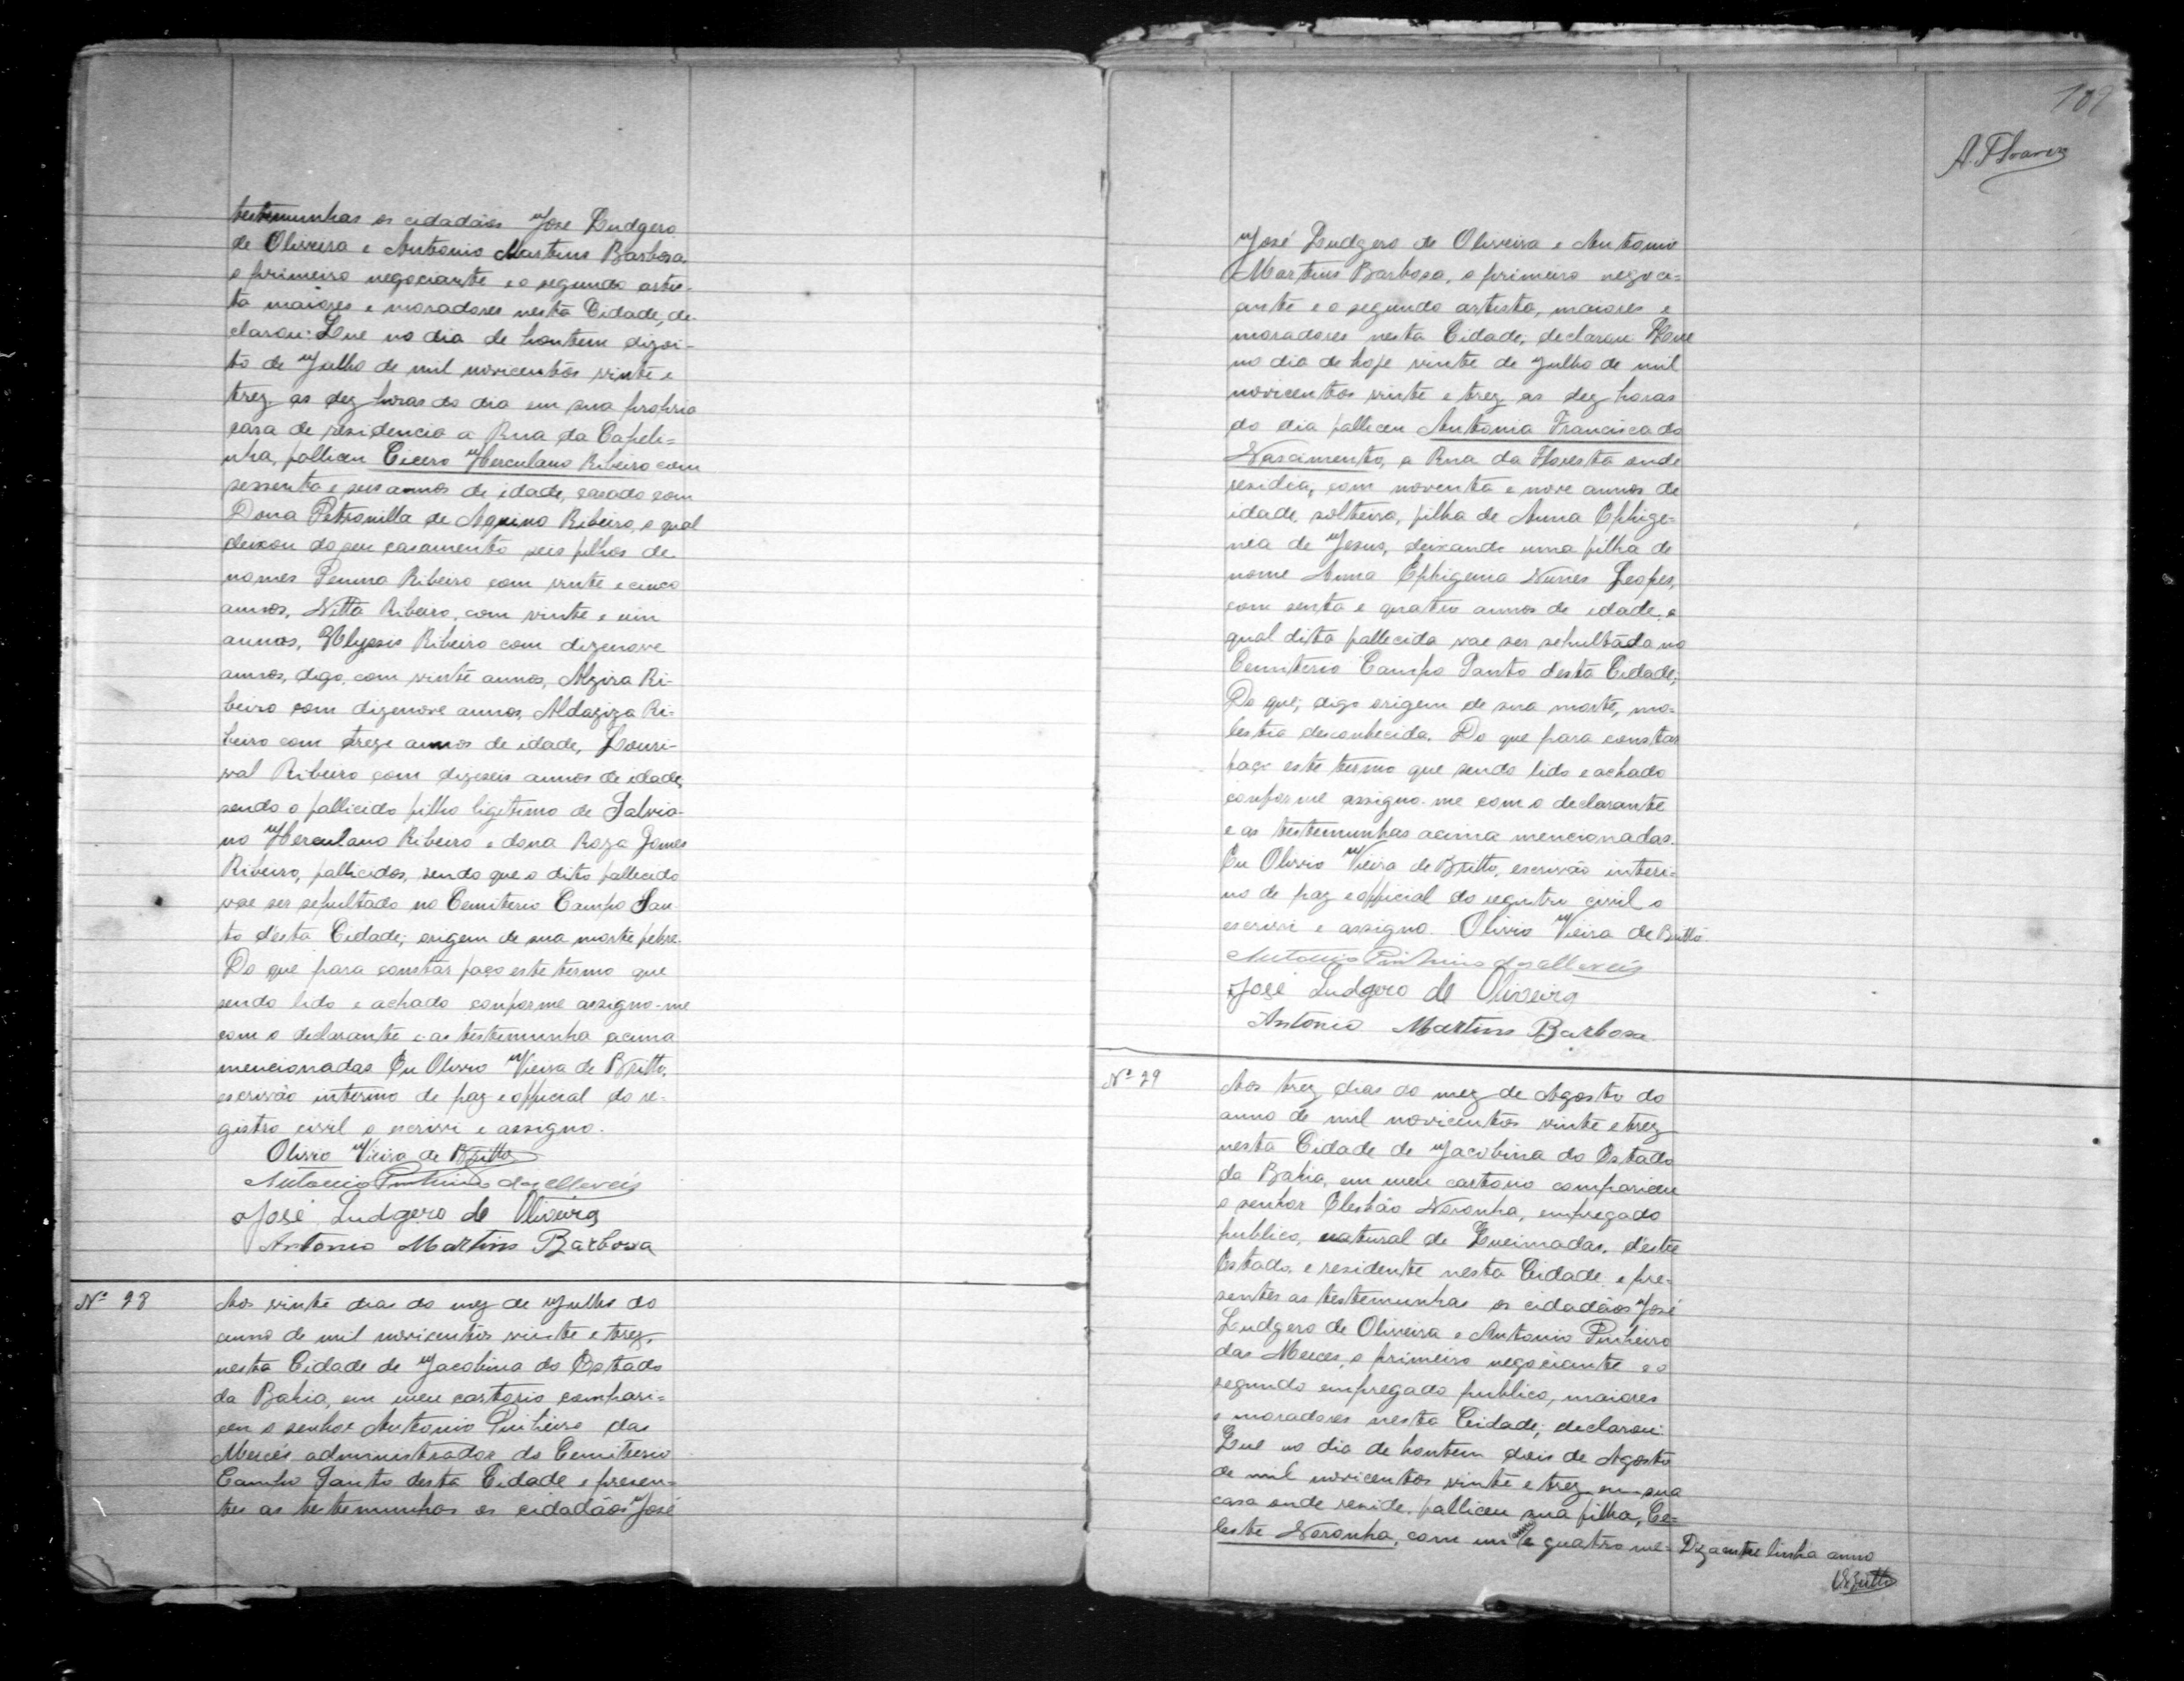 testemunhas os cidadãos José Ludgero
de Oliveira e Antonio Martins Barbosa
o primeiro negociante e o segundo artis-
ta maiores e moradores nesta Cidade, de-
clarou: Que no dia de hontem dizoi-
to de Julho de mil novicentos vinte e
trez as dez horas do dia em sua propria
casa de residencia a Rua da Capeli=
nha, falliceu Cicero Herculano Ribeiro com
sessenta e seis annos de idade, casado com
Dona Petronilla de Aquino Ribeiro, o qual
deixou do seu casamento seis filhos de
nomes Ribeiro com vinte e cinco
annos, Nitta Ribeiro, com vinte e um
annos, Ulysses Ribeiro com dizenove
annos, digo, com vinte annos, Alzira Ri-
beiro com dizenove annos, Aldaziza Ri-
beiro com treze annos de idade, Louri-
val Ribeiro com dizeseis annos de idade,
sendo o fallicido filho ligitimo de Salvia-
no Herculano Ribeiro e dona Roza Gomes
Ribeiro, fallicidos, sendo que o dito fallecido
vae ser sepultado no Cemiterio Campo San-
to d'esta Cidade; origem de sua morte febre.
Do que para constar faço este termo que
sendo lido e achado conforme assigno-me
com o declarante e as testemunha acima
mencionadas Eu Olivio Vieira de Britto,
escrivão interino de paz e official do re-
gistro civil o escrivi e assigno.
Olivio Vieira de Britto
Antonio Pinheiro das Mercês
José Ludgero de Oliveira
Antonio Martins Barbosa
Nº 28
Aos vinte dias do mez de Julho do
anno de mil novicentos vinte e trez,
nesta Cidade de Jacobina do Estado
da Bahia, em meu cartorio compari=
ceu o senhor Antonio Pinheiro das
Mercês administrador do Cemiterio
Campo Santo desta Cidade e presen-
tes as testemunhas os cidadãos José
A. Thvarez
José Ludgero de Oliveira e Antonio
Martins Barbosa, o primeiro negoci=
ante e o segundo artista, maiores e
moradores nesta Cidade, declarou: Que
no dia de hoje vinte de Julho de mil
novicentos vinte e trez as dez horas
do dia falliceu Antonia Francisca do
Nascimento, a Rua da Floresta onde
residia, com noventa e nove annos de
idade, solteira, filha de Anna Ephige-
nea de Jesus, deixando uma filha de
nome Anna Ephigena Nunes Lopes,
com senta e quatro annos de idade, a
qual dita fallecida vae ser sepultada no
Cemiterio Campo Santo desta Cidade;
Do que; digo origem de sua morte, mo-
lestia desconhecida. Do que para constar
faço este termo que sendo lido e achado
conforme assigno-me com o declarante
e as testemunhas acima mencionadas.
Eu Olivio Vieira de Britto, escrivão interi-
no de paz e official do registro civil o
escrivi e assigno. Olivio Vieira de Britto
Antonio Pinheiro das Mercês
José Ludgero de Oliveira
Antonio Martins Barbosa
Nº 29
Aos trez dias do mez de Agosto do
anno de mil novicentos vinte e trez
nesta Cidade de Jacobina do Estado
da Bahia, em meu cartorio compariceu
o senhor Elesbão Noronha, empregado
publico, natural de Queimadas, d'este
Estado, e residente nesta Cidade e pre-
sentes as testemunhas os cidadãos José
Ludgero de Oliveira e Antonio Pinheiro
das Merces, o primeiro negociante e o
segundo empregado publico, maiores
e moradores nesta Cidade; declarou:
Que no dia de hontem dois de Agosto
de mil novicentos vinte e trez em sua
casa onde reside, falliceu sua filha, Ce=
leste Noronha, com um anno e quatro me- Diz a entre linha anno
VBritto